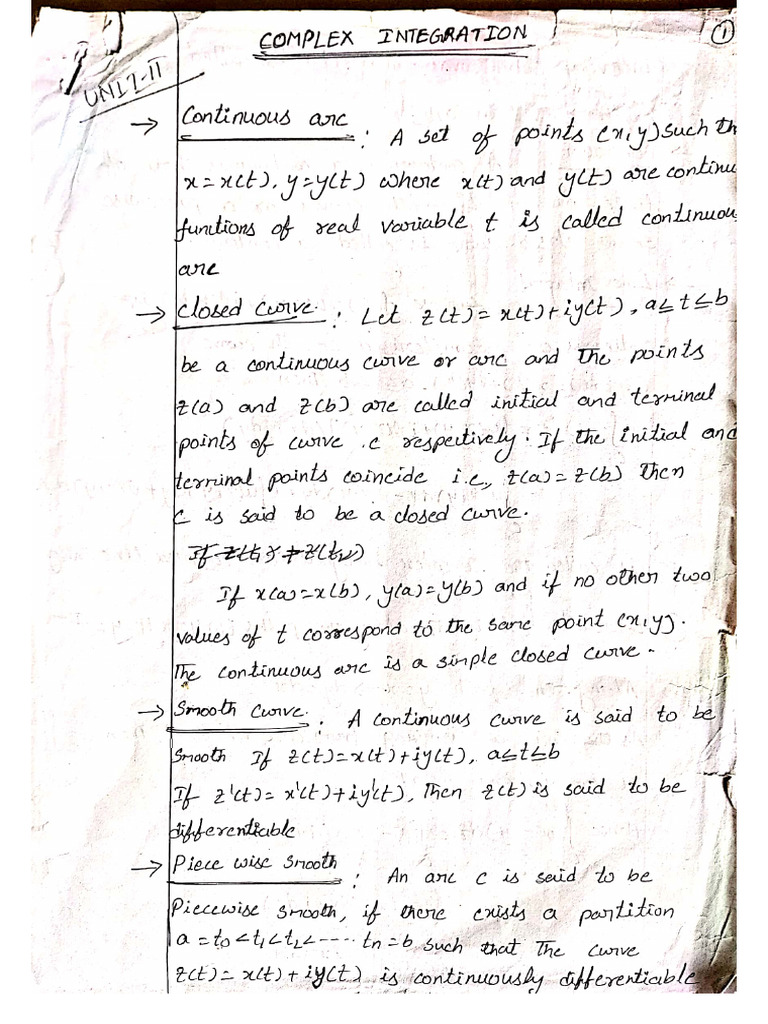 COMPLEX INTEGRATION
1
UNIT-II
→ Continuous arc : A set of points (x,y) such th
x=x(t), y=y(t) where x(t) and y(t) are continu
functions of real variable t is called continuou
arc
→ Closed Curve. : Let z(t)= x(t)+iy(t), a≤t≤b
be a continuous curve or arc and the points
z(a) and z(b) are called initial and terminal
points of curve .c respectively. If the initial and
terminal points coincide i.e., z(a)=z(b) then
C is said to be a closed curve.
If z(t1) ≠ z(t2)
If x(a)=x(b), y(a)=y(b) and if no other two
values of t correspond to the same point (x,y).
The continuous arc is a simple closed curve.
→ Smooth Curve. : A continuous curve is said to be
Smooth If z(t)=x(t)+iy(t), a≤t≤b
If z'(t)= x'(t)+iy'(t), Then z(t) is said to be
differentiable
→ Piece wise Smooth : An arc C is said to be
Piecewise smooth, if there exists a partition
a=t0<t1<t2<----tn=b such that The curve
z(t)=x(t)+iy(t) is continuously differentiable